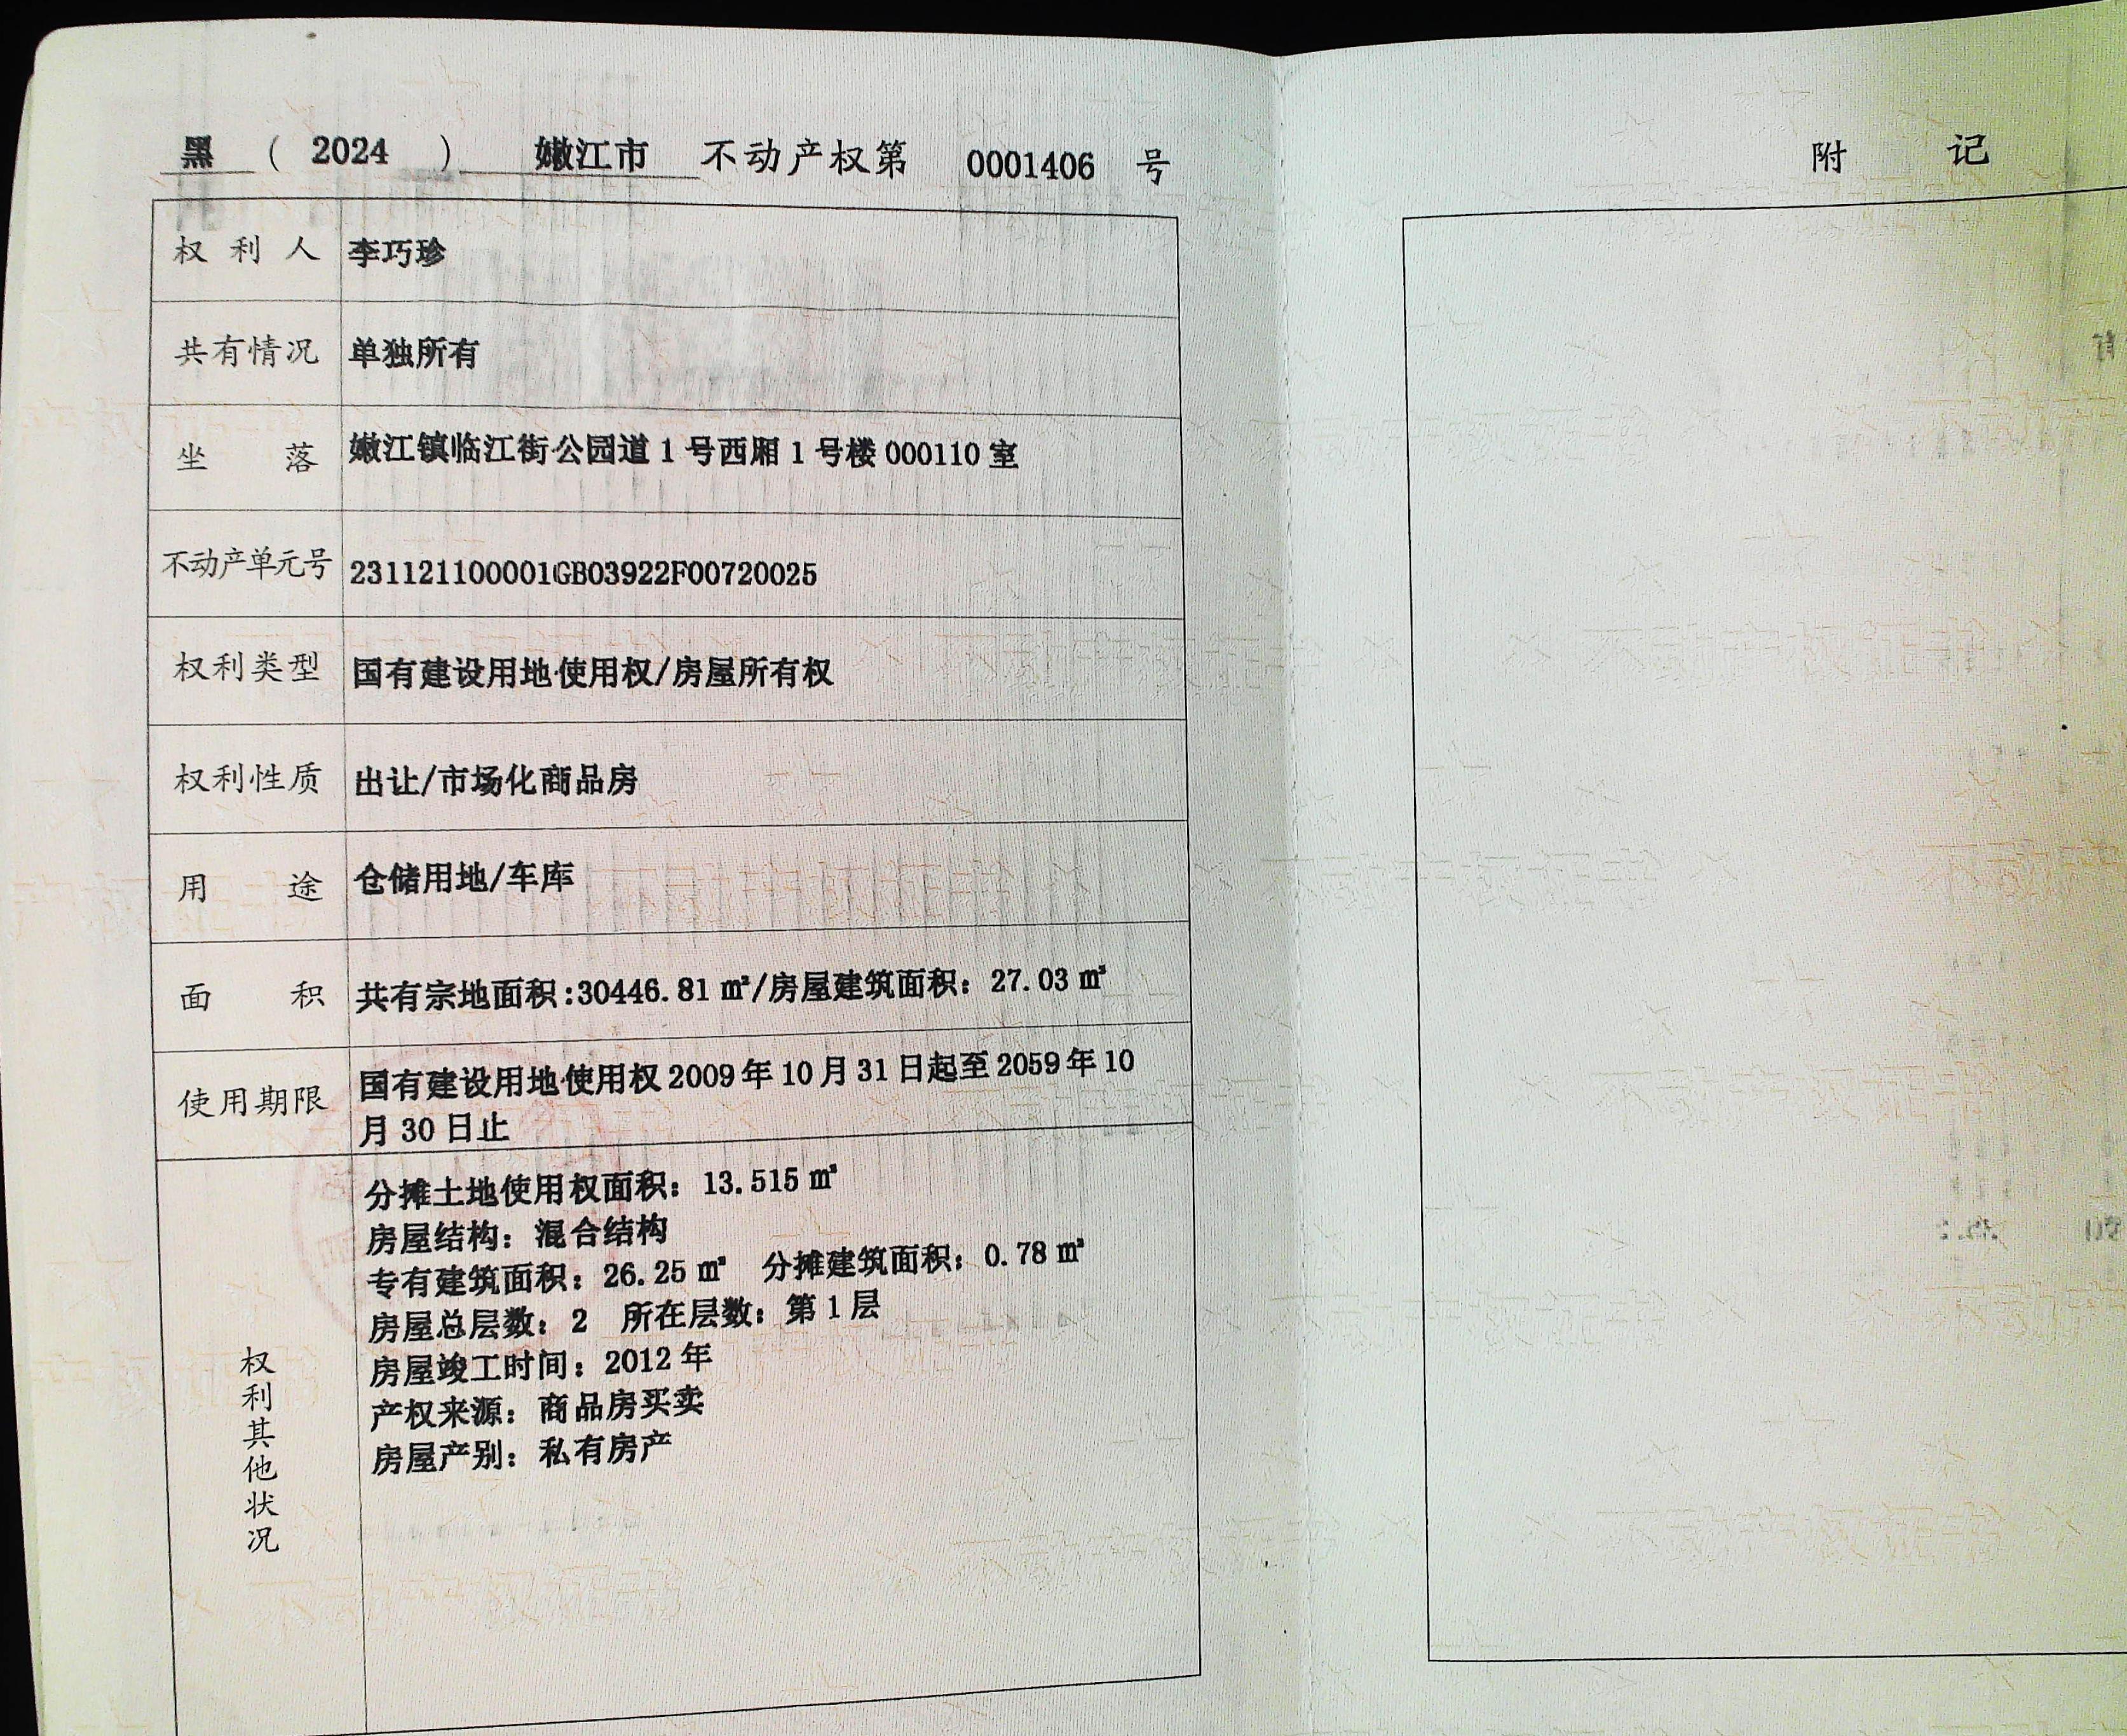 黑 ( 2024 ) 嫩江市 不动产权第 0001406 号
权利人 李巧珍
共有情况 单独所有
坐落 嫩江镇临江街公园道1号西厢1号楼000110室
不动产单元号 231121100001GB03922F00720025
权利类型 国有建设用地使用权/房屋所有权
权利性质 出让/市场化商品房
用途 仓储用地/车库
面积 共有宗地面积:30446.81㎡/房屋建筑面积：27.03㎡
使用期限 国有建设用地使用权2009年10月31日起至2059年10
月30日止
权利其他状况
分摊土地使用权面积：13.515㎡
房屋结构：混合结构
专有建筑面积：26.25㎡ 分摊建筑面积：0.78㎡
房屋总层数：2 所在层数：第1层
房屋竣工时间：2012年
产权来源：商品房买卖
房屋产别：私有房产
附记